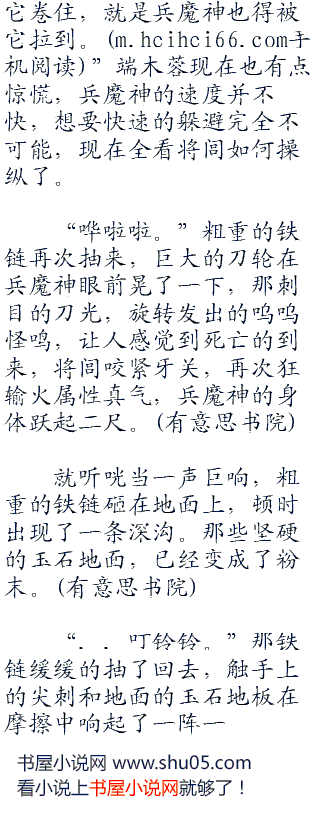 它卷住，就是兵魔神也得被
它拉到。(m.hcihci66.com手
机阅读)”端木蓉现在也有点
惊慌，兵魔神的速度并不
快，想要快速的躲避完全不
可能，现在全看将闾如何操
纵了。
“哗啦啦。”粗重的铁
链再次抽来，巨大的刀轮在
兵魔神眼前晃了一下，那刺
目的刀光，旋转发出的呜呜
怪鸣，让人感觉到死亡的到
来，将闾咬紧牙关，再次狂
输火属性真气，兵魔神的身
体跃起二尺。(有意思书院)
就听咣当一声巨响，粗
重的铁链砸在地面上，顿时
出现了一条深沟。那些坚硬
的玉石地面，已经变成了粉
末。(有意思书院)
“．．叮铃铃。”那铁
链缓缓的抽了回去，触手上
的尖刺和地面的玉石地板在
摩擦中响起了一阵一
书屋小说网 www.shu05.com
看小说上书屋小说网就够了！